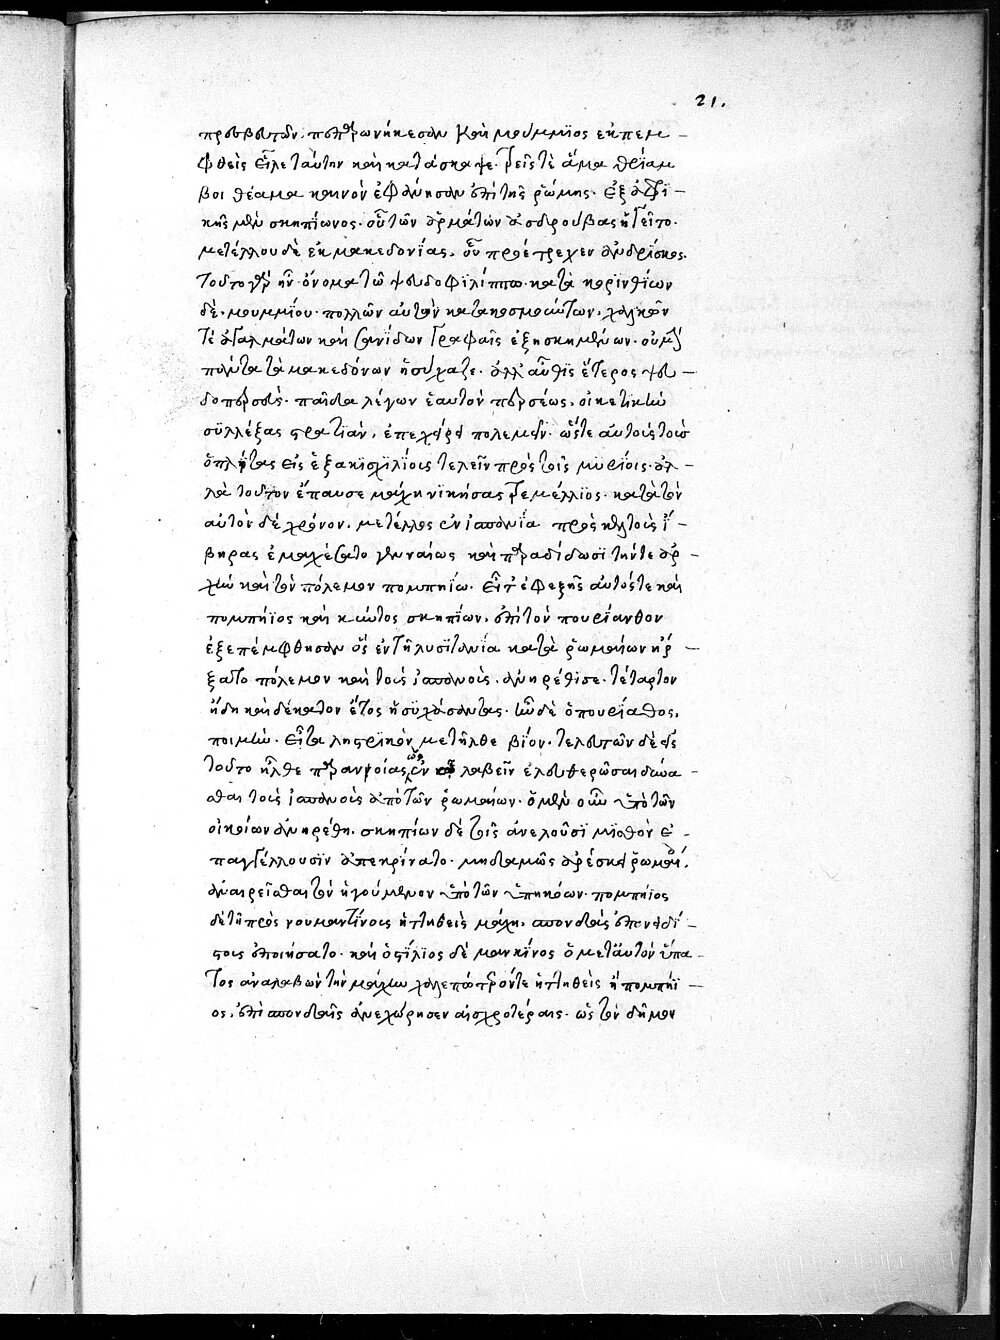 21.
πρεσβευτῶν. παρῳνήκεσαν καὶ μουμμϊος ἐκπεμ-
φθεὶς εἷλε ταύτην καὶ κατάσκαψε. τρεῖς τὲ ἅμα θρίαμ
βοι θέαμα καινὸν ἐφάνησαν ἐπὶ τῆς ῥώμης. ἐξ ἀφρι-
κῆς μὲν σκηπίωνος. οὗ τῶν ἁρμάτων ἀσδρούβας ἡγεῖτο.
μετέλλου δὲ ἐκ μακεδονίας. οὗ προέτρεχεν ἀνδρίσκος.
τοῦτο γὰρ ἦν ὄνομα τῶ ψευδοφιλίππω. κατὰ κορινθίων
δὲ. μουμμίου. πολλῶν αὐτὸν κατακοσμούντων. χαλκῶν
τὲ ἀγαλμάτων καὶ σανίδων γραφαῖς ἐξησκημένων. οὐ μὴν
πάντα τὰ μακεδόνων ἡσύχαζε. ἀλλ' αὖθις ἕτερος ψευ-
δοπερσεὺς. παῖδα λέγων ἑαυτὸν περσέως. οἰκετικὴν
συλλέξας στρατιὰν, ἐπεχείρει πολεμεῖν. ὥστε αὐτοὺς τοὺς
ὁπλίτας εἰς ἑξακισχιλίους τελεῖν πρὸς τοῖς μυρίοις. ἀλ-
λὰ τοῦτον ἔπαυσε μάχη νϊκήσας τρεμέλλϊος. κατὰ τὸν
αὐτὸν δὲ χρόνον. μετέλλος ἐν ἱσπανία πρὸς κελτοὺς ἴ-
βηρας ἐμαχέσατο γενναίως καὶ παραδίδωσι τήν τε ἀρ-
χὴν καὶ τὸν πόλεμον πομπηίω. εἶτ' ἐφεξῆς αὐτός τε καὶ
πομπήϊος καὶ κώϊτος σκηπίων. ἐπὶ τὸν πουρίανθον
ἐξεπέμφθησαν ὃς ἐν τῆ λυσϊτανία κατὰ ῥωμαίων ἤρ-
ξατο πόλεμον καὶ τοὺς ἱσπανοὺς. ἀνηρέθισε. τέταρτον
ἤδη καὶ δέκατον ἔτος ἡσυχάσαντας. ἦν δὲ ὁ πουρίαθος.
ποιμὴν. εἶτα ληστρικὸν μετῆλθε βίον. τελευτῶν δὲ εἰς
τοῦτο ἦλθε παρανοίας, ὡς ἐν λαβεῖν ἐλευθερῶσαι δύνα-
σθαι τοὺς ἱσπανοὺς ἀπὸ τῶν ῥωμαίων. ὁ μὲν οὖν ὑπὸ τῶν
οἰκείων ἀνηρέθη. σκηπίων δὲ τοῖς ἀνελοῦσϊ μϊσθὸν ἐ-
παγγέλλουσϊν ἀπεκρίνατο. μηδαμῶς ἀρέσκει ῥωμαίοις
ἀναιρεῖσθαι τὸν ἡγούμενον ὑπὸ τῶν ὑπηκόων. πομπήϊος
δὲ τῆ πρὸς νουμαντίνους ἡττηθεὶς μάχη. σπονδὰς ἐπονειδί-
στους ἐποιήσατο. καὶ ὁστίλιος δὲ μανκίνος ὁ μετ' αὐτὸν ὕπα-
τος ἀναλαβὼν τὴν μάχην χαλεπωτέρον τε ἡττηθεὶς ἢ πομπήϊ-
ος. ἐπὶ σπονδαῖς ἀνεχώρησεν αἰσχροτέραις. ὡς τὸν δῆμον